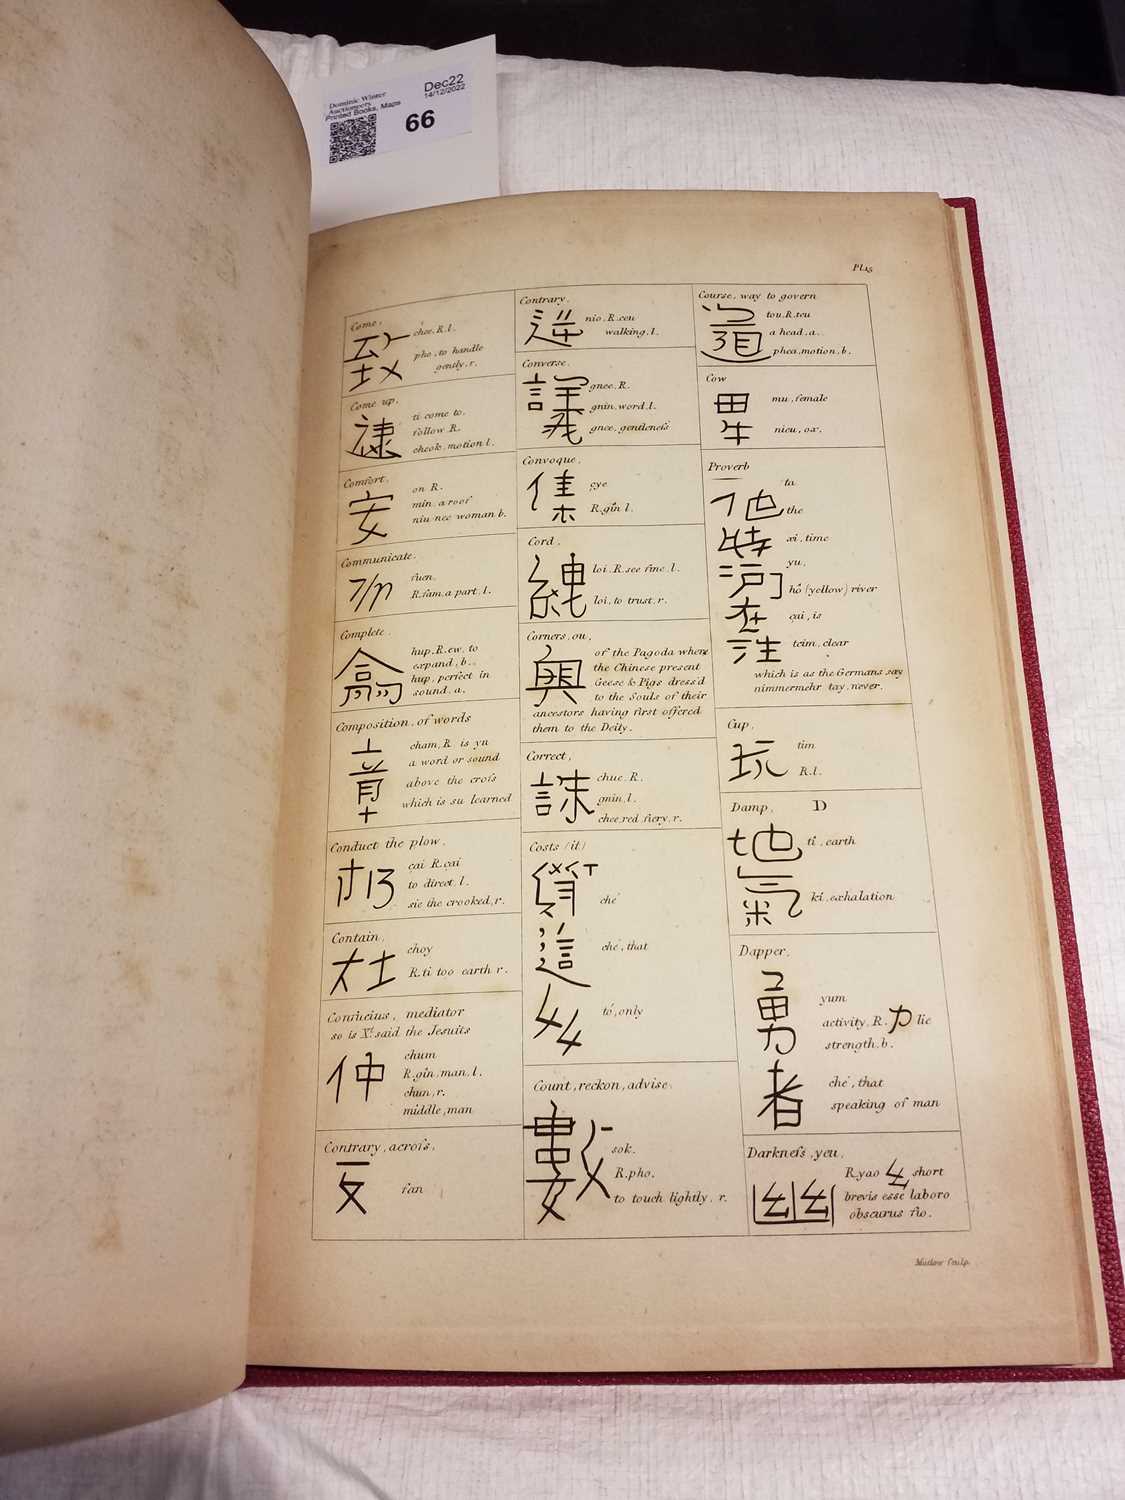 Dominic Winter
Auctioneers
Printed Books, Maps
Dec22
14/12/2022
66
Pl.15
Come,
chee, R. l.
pho, to handle
gently, r.
Come up,
ti come to,
follow R.
cheok, motion l.
Comfort,
安
on R.
min, a roof
niu nee woman b.
Communicate,
fuen,
R. fam, a part, l.
Complete,
hup, R. ew, to
expand, b.,
hup, perfect in
sound, a.
Composition, of words
章
cham, R is yu
a word or sound
above the croſs
which is su learned
Conduct the plow,
çai R. çai
to direct, l.
sie the crooked, r.
Contain,
choy
R. ti too earth r.
Confucius, mediator
so is Xt. said the Jesuits
仲
chum
R. gin, man, l.
chun, r.
middle, man
Contrary, acroſs,
反
fan
Contrary,
逆
nio, R. ceu
walking, l.
Converse,
議
gnee, R.
gnin, word, l.
gnee, gentleneſs
Convoque,
集
çye
R. gin l.
Cord,
繩
loi, R. see fine, l.
loi, to trust, r.
Corners, ou,
奧
of the Pagoda where
the Chinese present
Geese & Pigs dress'd
to the Souls of their
ancestors having first offered
them to the Deity.
Correct,
誅
chue, R.
gnin, l.
chee, red fiery, r.
Costs (it)
ché
這
ché, that
tó, only
Count, reckon, advise
數
sok,
R. pho,
to touch lightly, r.
Course, way to govern
道
tou, R. teu
a head, a.
phea, motion, b.
Cow
mu, female
nieu, ox,
Proverb
他
ta
the
時
xi, time
yu,
河
hô (yellow) river
在
çai, is
tcim, clear
which is as the Germans say
nimmermehr tay, never.
Cup,
玩
tim
R. l.
Damp, D
地
ti, earth
氣
ki, exhalation
Dapper,
勇
yum
activity, R. 力 lie
strength, b.
者
ché, that
speaking of man
Darkneſs, yeu,
幽
R. yao 幺 short
brevis esse laboro
obscurus fio.
Mutlow Sculp.